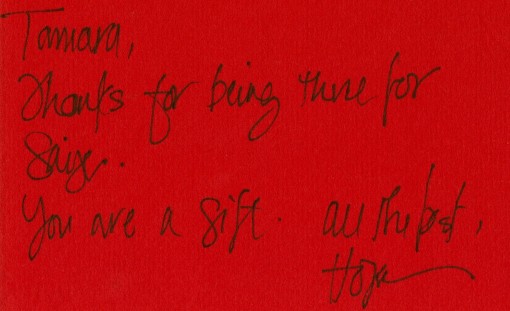 Tamara,
Thanks for being there for
You are a gift. All the best,